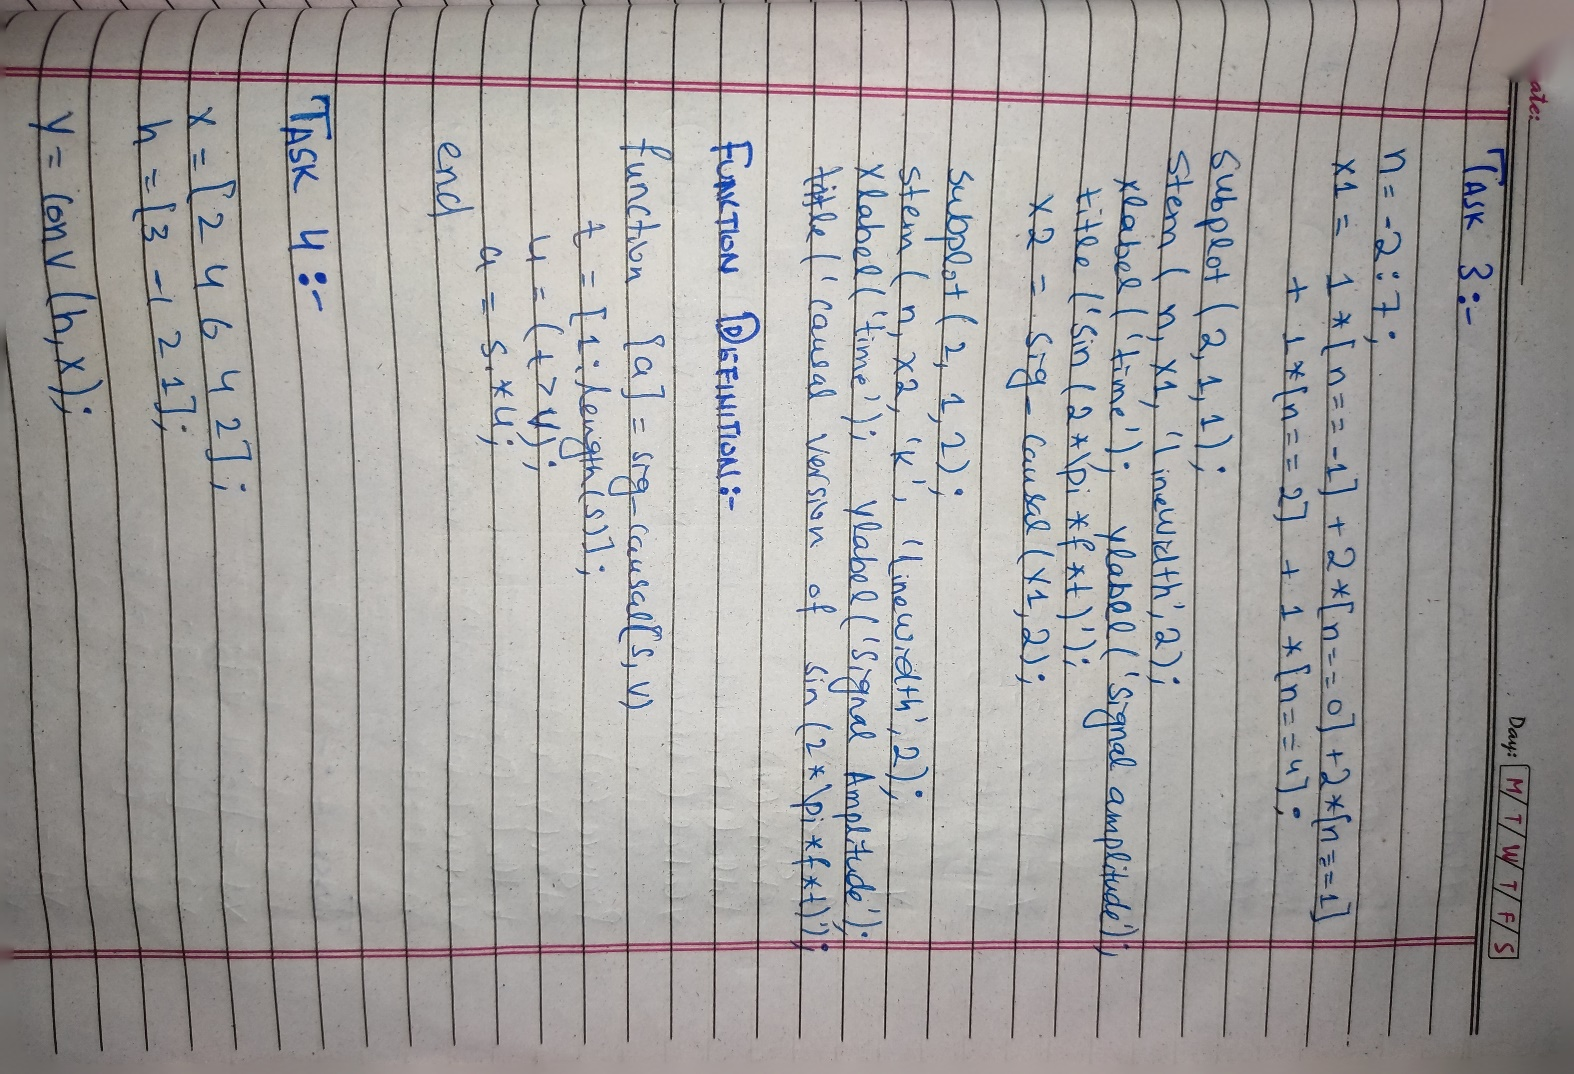 ate:
Day: M/T/W/T/F/S
TASK 3:-
n = -2:7;
x1 = 1*[n==-1] + 2*[n==0] + 2*[n==1]
+ 1*[n==2] + 1*[n==4];
subplot(2,1,1);
stem(n,x1,'linewidth',2);
xlabel('time'); ylabel('signal amplitude');
title('sin(2*\pi*f*t)');
x2 = sig-causal(x1,2);
subplot(2,1,2);
stem(n,x2,'k','linewidth',2);
xlabel('time'); ylabel('signal Amplitude');
title('causal version of sin(2*\pi*f*t)');
FUNCTION DEFINITION:-
function [a] = sig-causal(s,v)
t = [1:length(s)];
u = (t>v);
a = s.*u;
end
TASK 4:-
x = [2 4 6 4 2];
h = [3 -1 2 1];
y = conv(h,x);